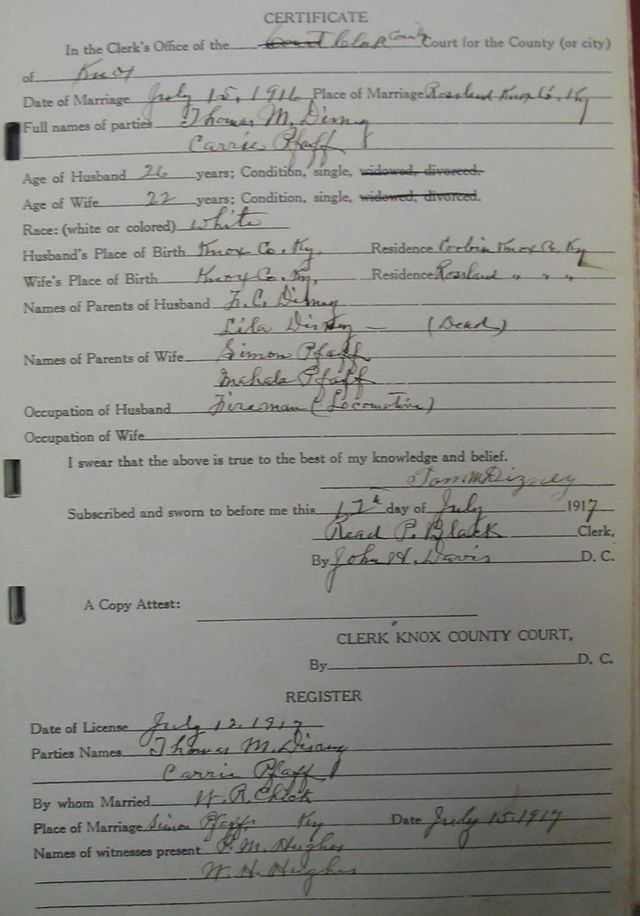 CERTIFICATE
In the Clerk's Office of the Clark County Court for the County (or city)
of Knox
Date of Marriage July 15, 1916 Place of Marriage Rossland Knox Co, Ky
Full names of parties Thomas M. Disney
Carrie Pfaff
Age of Husband 26 years; Condition, single, widowed, divorced.
Age of Wife 22 years; Condition, single, widowed, divorced.
Race: (white or colored) White
Husband's Place of Birth Knox Co, Ky. Residence Corbin Knox Co. Ky
Wife's Place of Birth Knox Co. Ky, Residence Rossland " " "
Names of Parents of Husband C. Disney
Lila Disney — (Dead)
Names of Parents of Wife Simon Pfaff
Mahala Pfaff
Occupation of Husband Fireman (Locomotive)
Occupation of Wife
I swear that the above is true to the best of my knowledge and belief.
Tom M Dizney
Subscribed and sworn to before me this 17th day of July 1917
Read P. Black Clerk,
By John H. Davis D. C.
A Copy Attest:
CLERK KNOX COUNTY COURT,
By D. C.
REGISTER
Date of License July 12, 1917
Parties Names Thomas M. Disney
Carrie Pfaff
By whom Married W. R. Chick
Place of Marriage Simon Pfaffs Ky Date July 15-1917
Names of witnesses present M. Hughes
W. H. Hughes